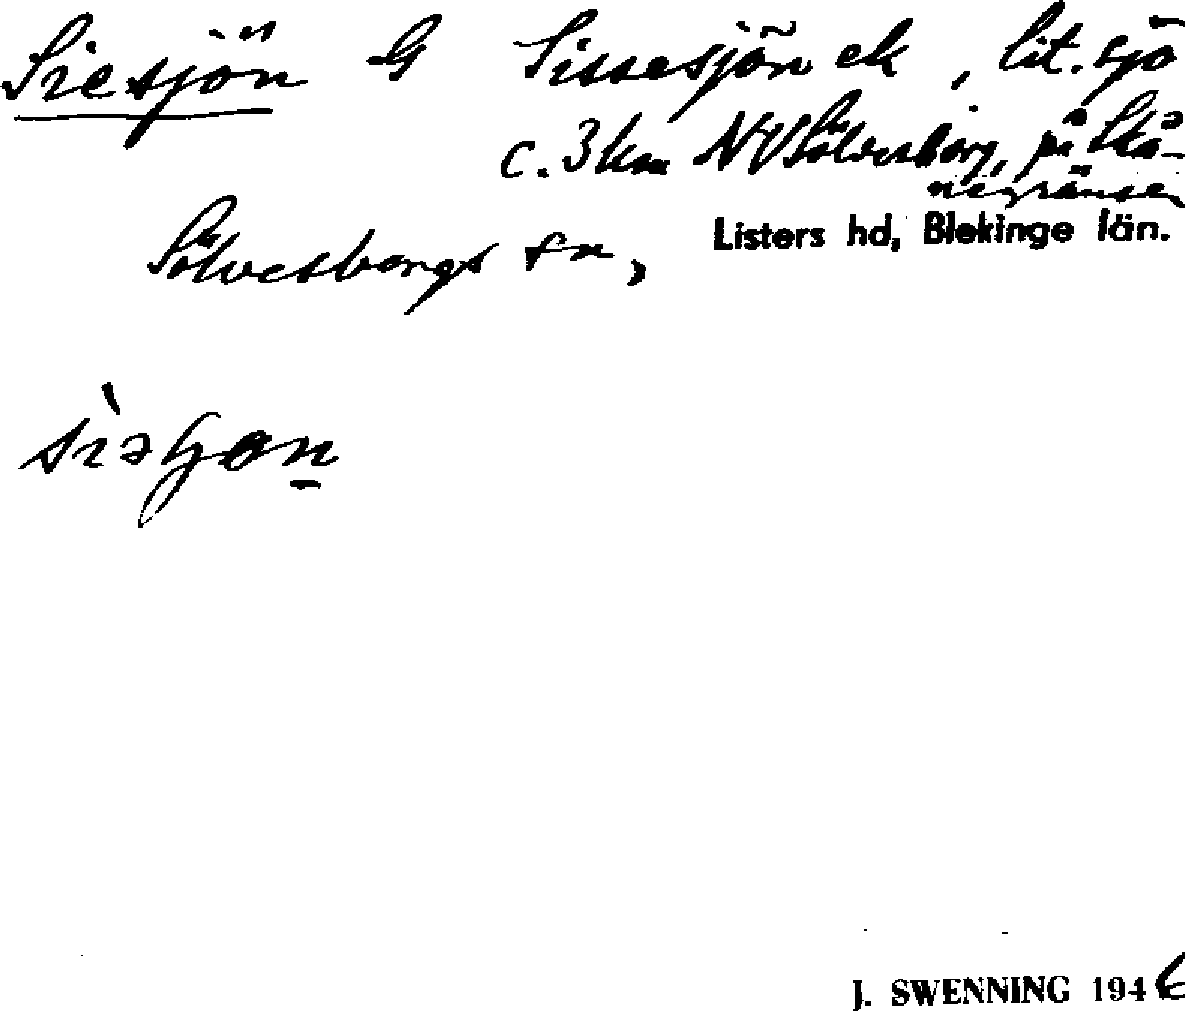 Siesjön G Sissesjön ek, lit. sjö
c. 3 km NV Sölvesborg, på Skå-
negränsen
Sölvesborgs sn, Listers hd, Blekinge län.
J. SWENNING 1946